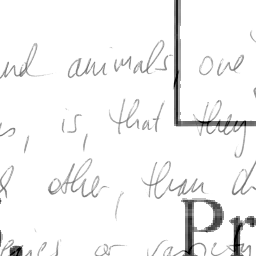 and animals, one
is, that they
other, than
Pr
or variety